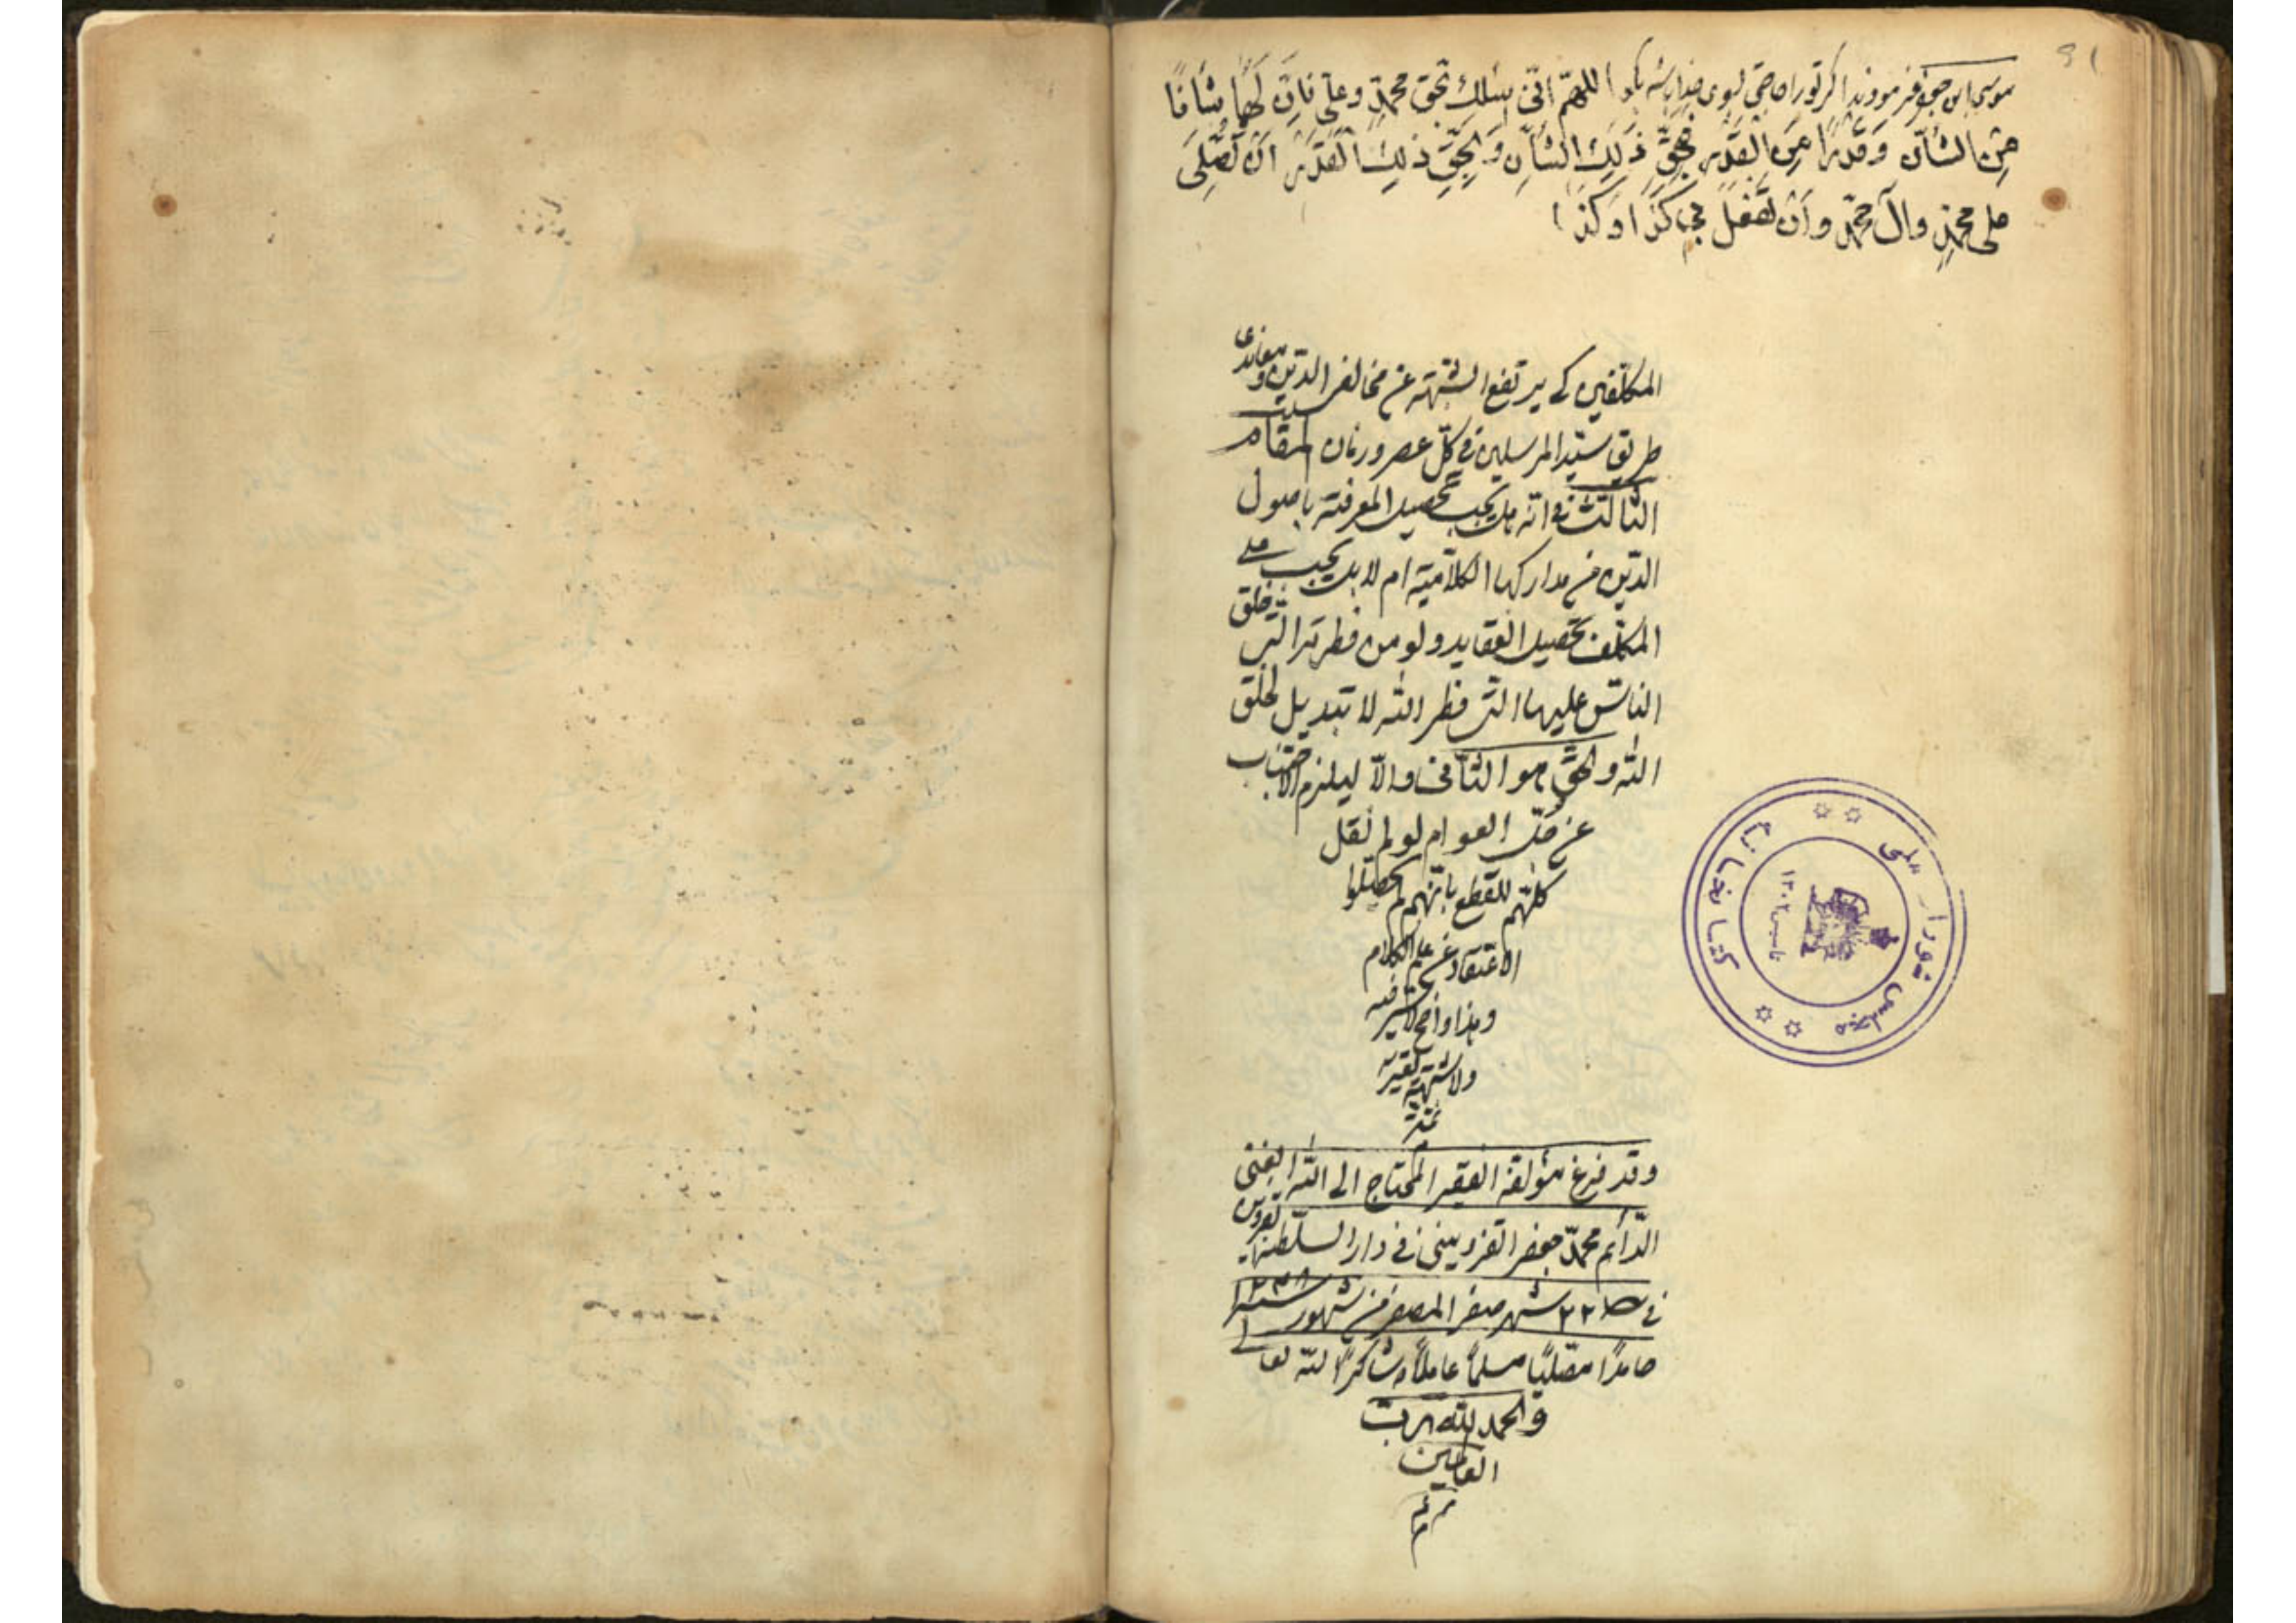 موسی ابن جعفر فرمودند اگر تو را حاجتی بسوی خدا باشد بگو اللهمّ انّی اسئلك بحق محمدٍ وعلی فانّ لَهُما شأنًا
مِنَ الشأن وَقَدْرًا مِنَ القَدْرِ فَبِحَقِّ ذَلِكَ الشَأنِ وَبِحَقِّ ذلِكَ القَدْرِ اَنْ تُصَلِّیَ
علی محمدٍ وآل محمّدٍ واَنْ تفعَلَ بی كَذَا وَكَذَا
المكلّفین كے یرتفع الشبهة عن مخالفے الدّین ومعاندی
طریق سیّد المرسلین فی كلّ عصر وزمان المقام
الثالث فی انّه هل یجب تحصیل المعرفة باصول
الدّین من مداركها الكلامیّة ام لا بل یجب علی
المكلّف تحصیل العقاید ولو من فطرته التی خلق
الناس علیها التی فطر الله لا تبدیل لخلق
الله والحقّ هو الثّانی والّا لیلزم الاجتناب
عن جلّ العوام لو لم نقل
كلّهم للقطع بانّهم لم یحصّلوا
الاعتقاد عن علم الكلام
وهذا واضح لا ستر فیه
ولا شبهة تعتریه
تمت
وقد فرغ مؤلفه الفقیر المحتاج الی الله الغنی
الدّائم محمّد جعفر القزوینی فی دار السلطنة قزوین
فی ٢٢ شهر صفر المصفر من شهور سنة ١٢٣٨
حامدًا مصلّیًا مسلمًا عاملًا وشاكرًا لله تعالی
والحمد لله ربّ
العالمین
كتابخانه مجلس شورای ملی
تاسیس ١٣٠٢